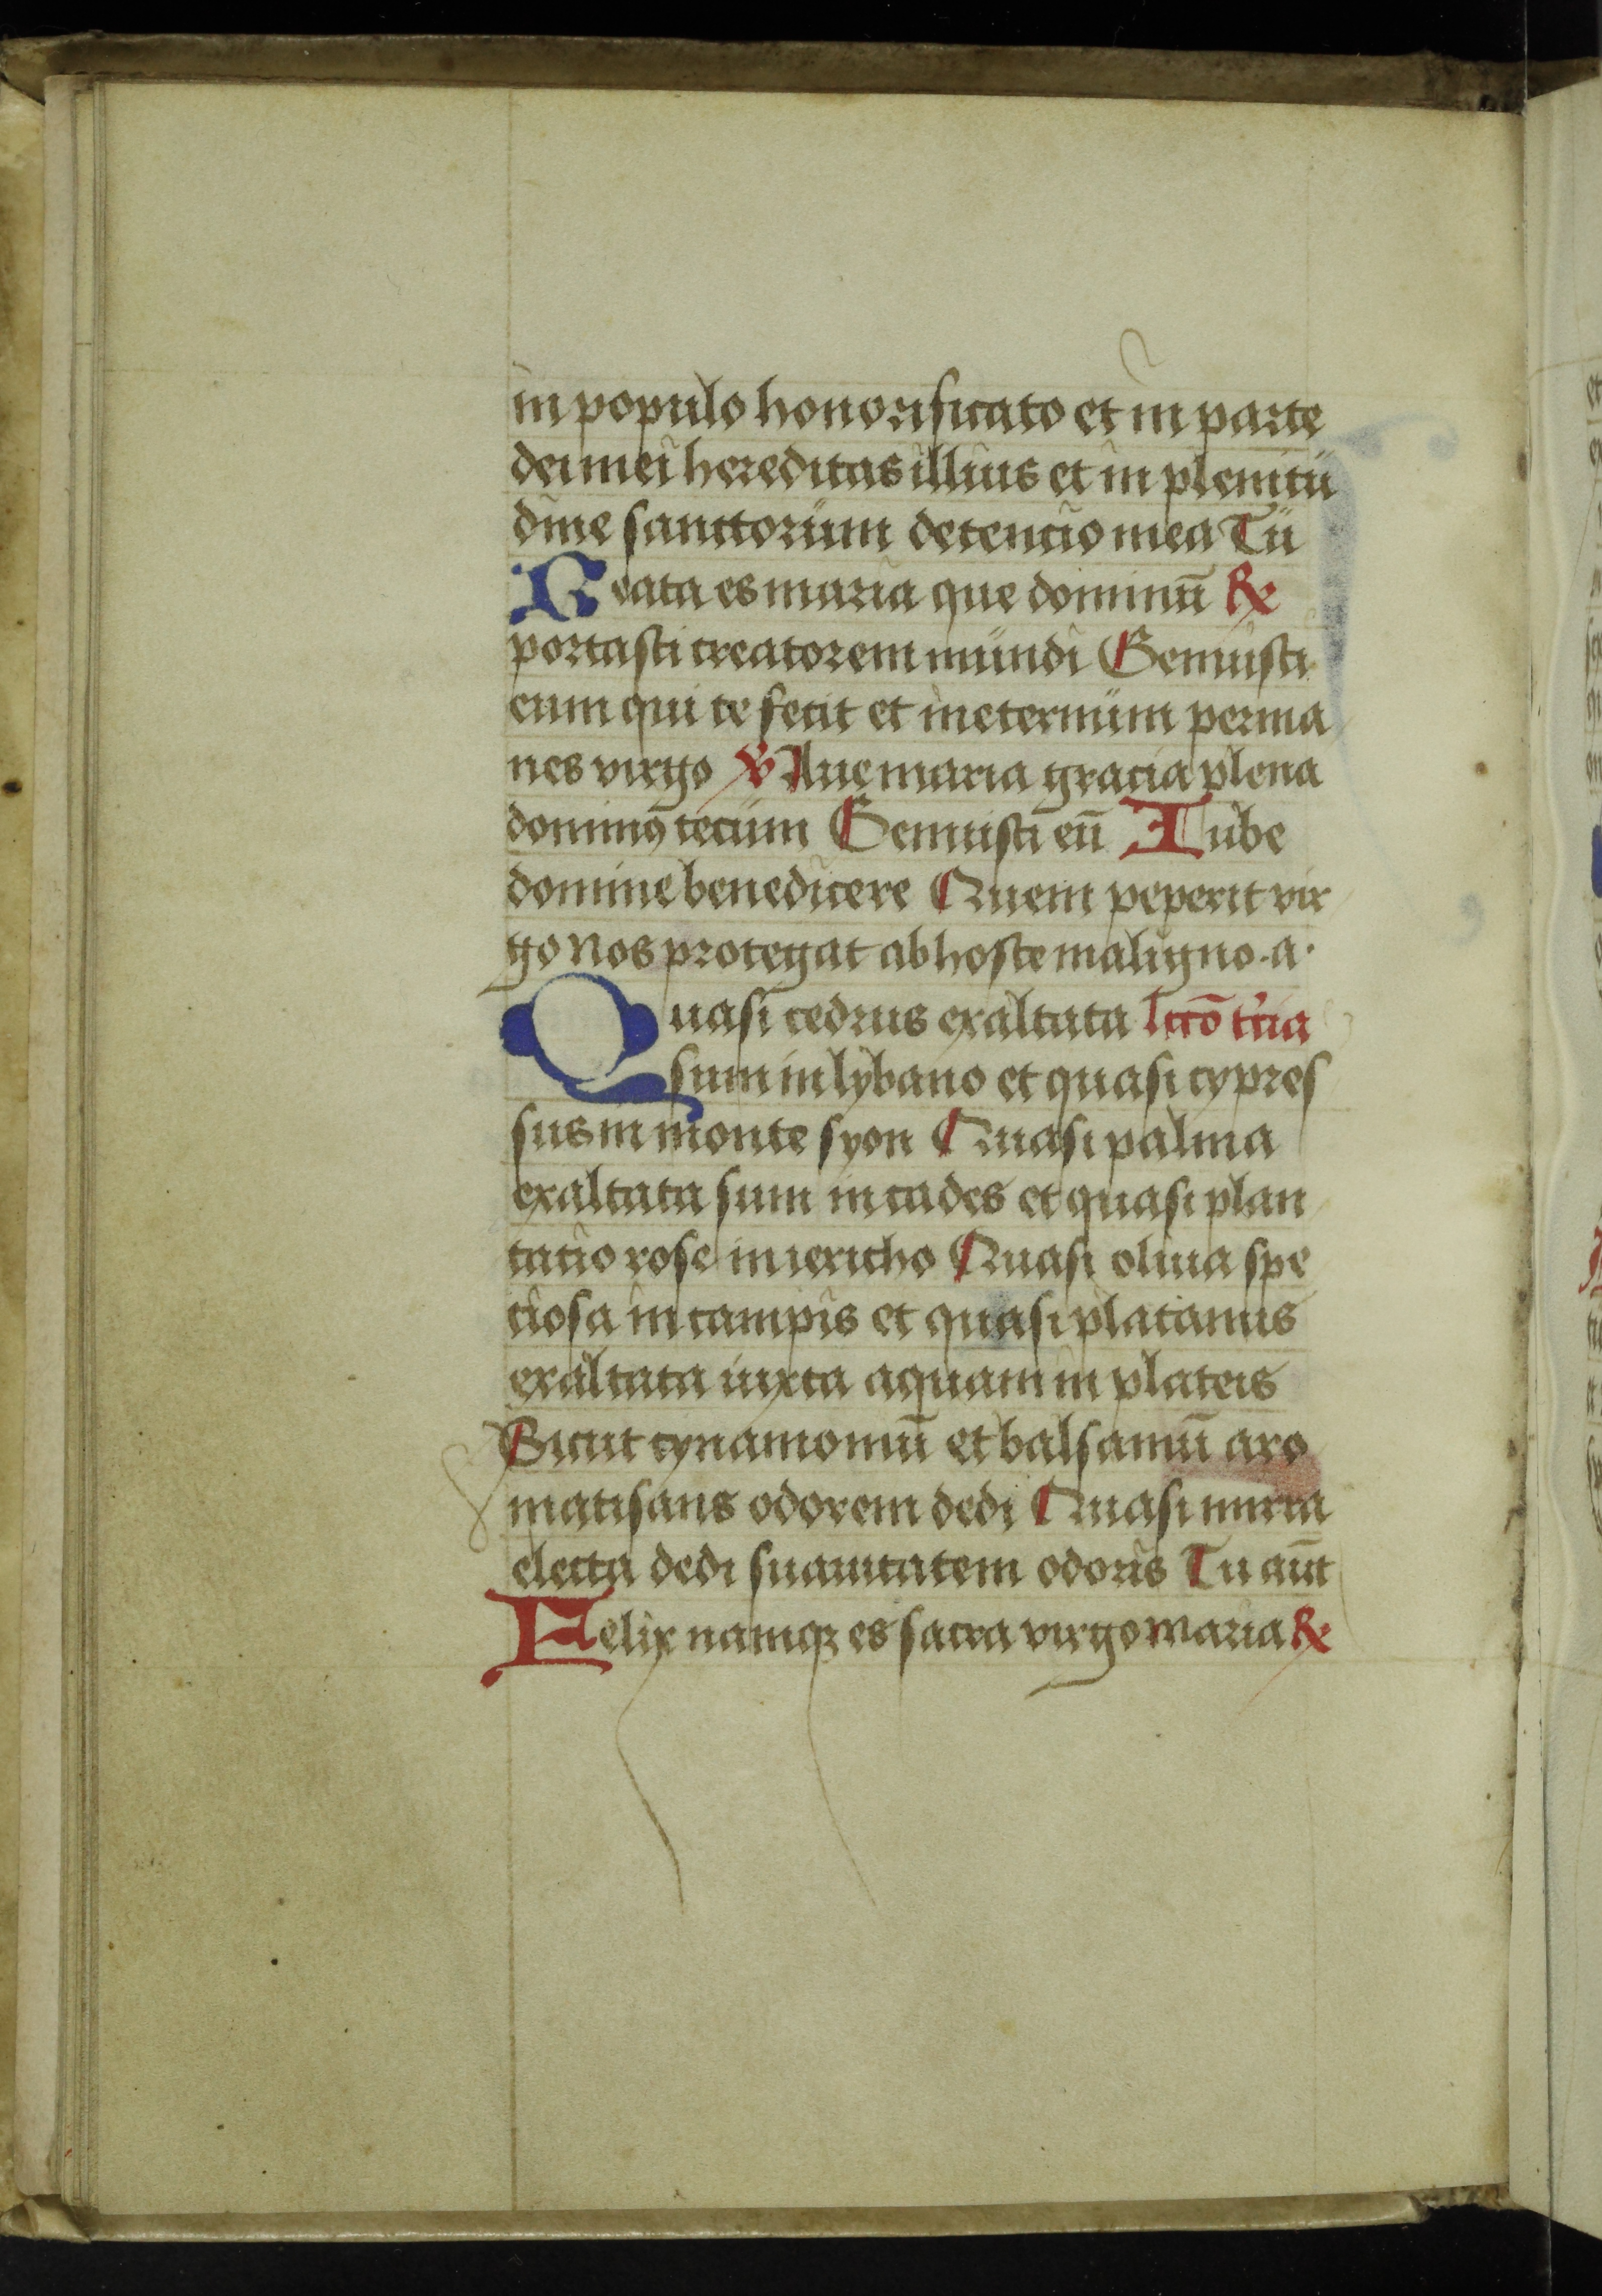 in populo honorificato et in parte
dei mei hereditas illius et in plenitu
dine sanctorum detencio mea Tu
Beata es maria que dominū ℟
portasti creatorem mundi Genuisti
eum qui te fecit et ineternum perma
nes virgo ℣ Aue maria gracia plena
dominꝰ tecum Genuisti eū Iube
domine benedicere Quem peperit vir
go nos protegat ab hoste maligno·a·
Quasi cedrus exaltata lectō t'cia
sum in lybano et quasi cypres
sus in monte syon Quasi palma
exaltata sum in cades et quasi plan
tacio rose in iericho Quasi oliua spe
ciosa in campis et quasi platanus
exaltata iuxta aquam in plateis
Sicut cynamomū et balsamū aro
matisans odorem dedi Quasi mirra
electa dedi suauitatem odoris Tu aūt
Felix namqꝫ es sacra virgo maria ℟